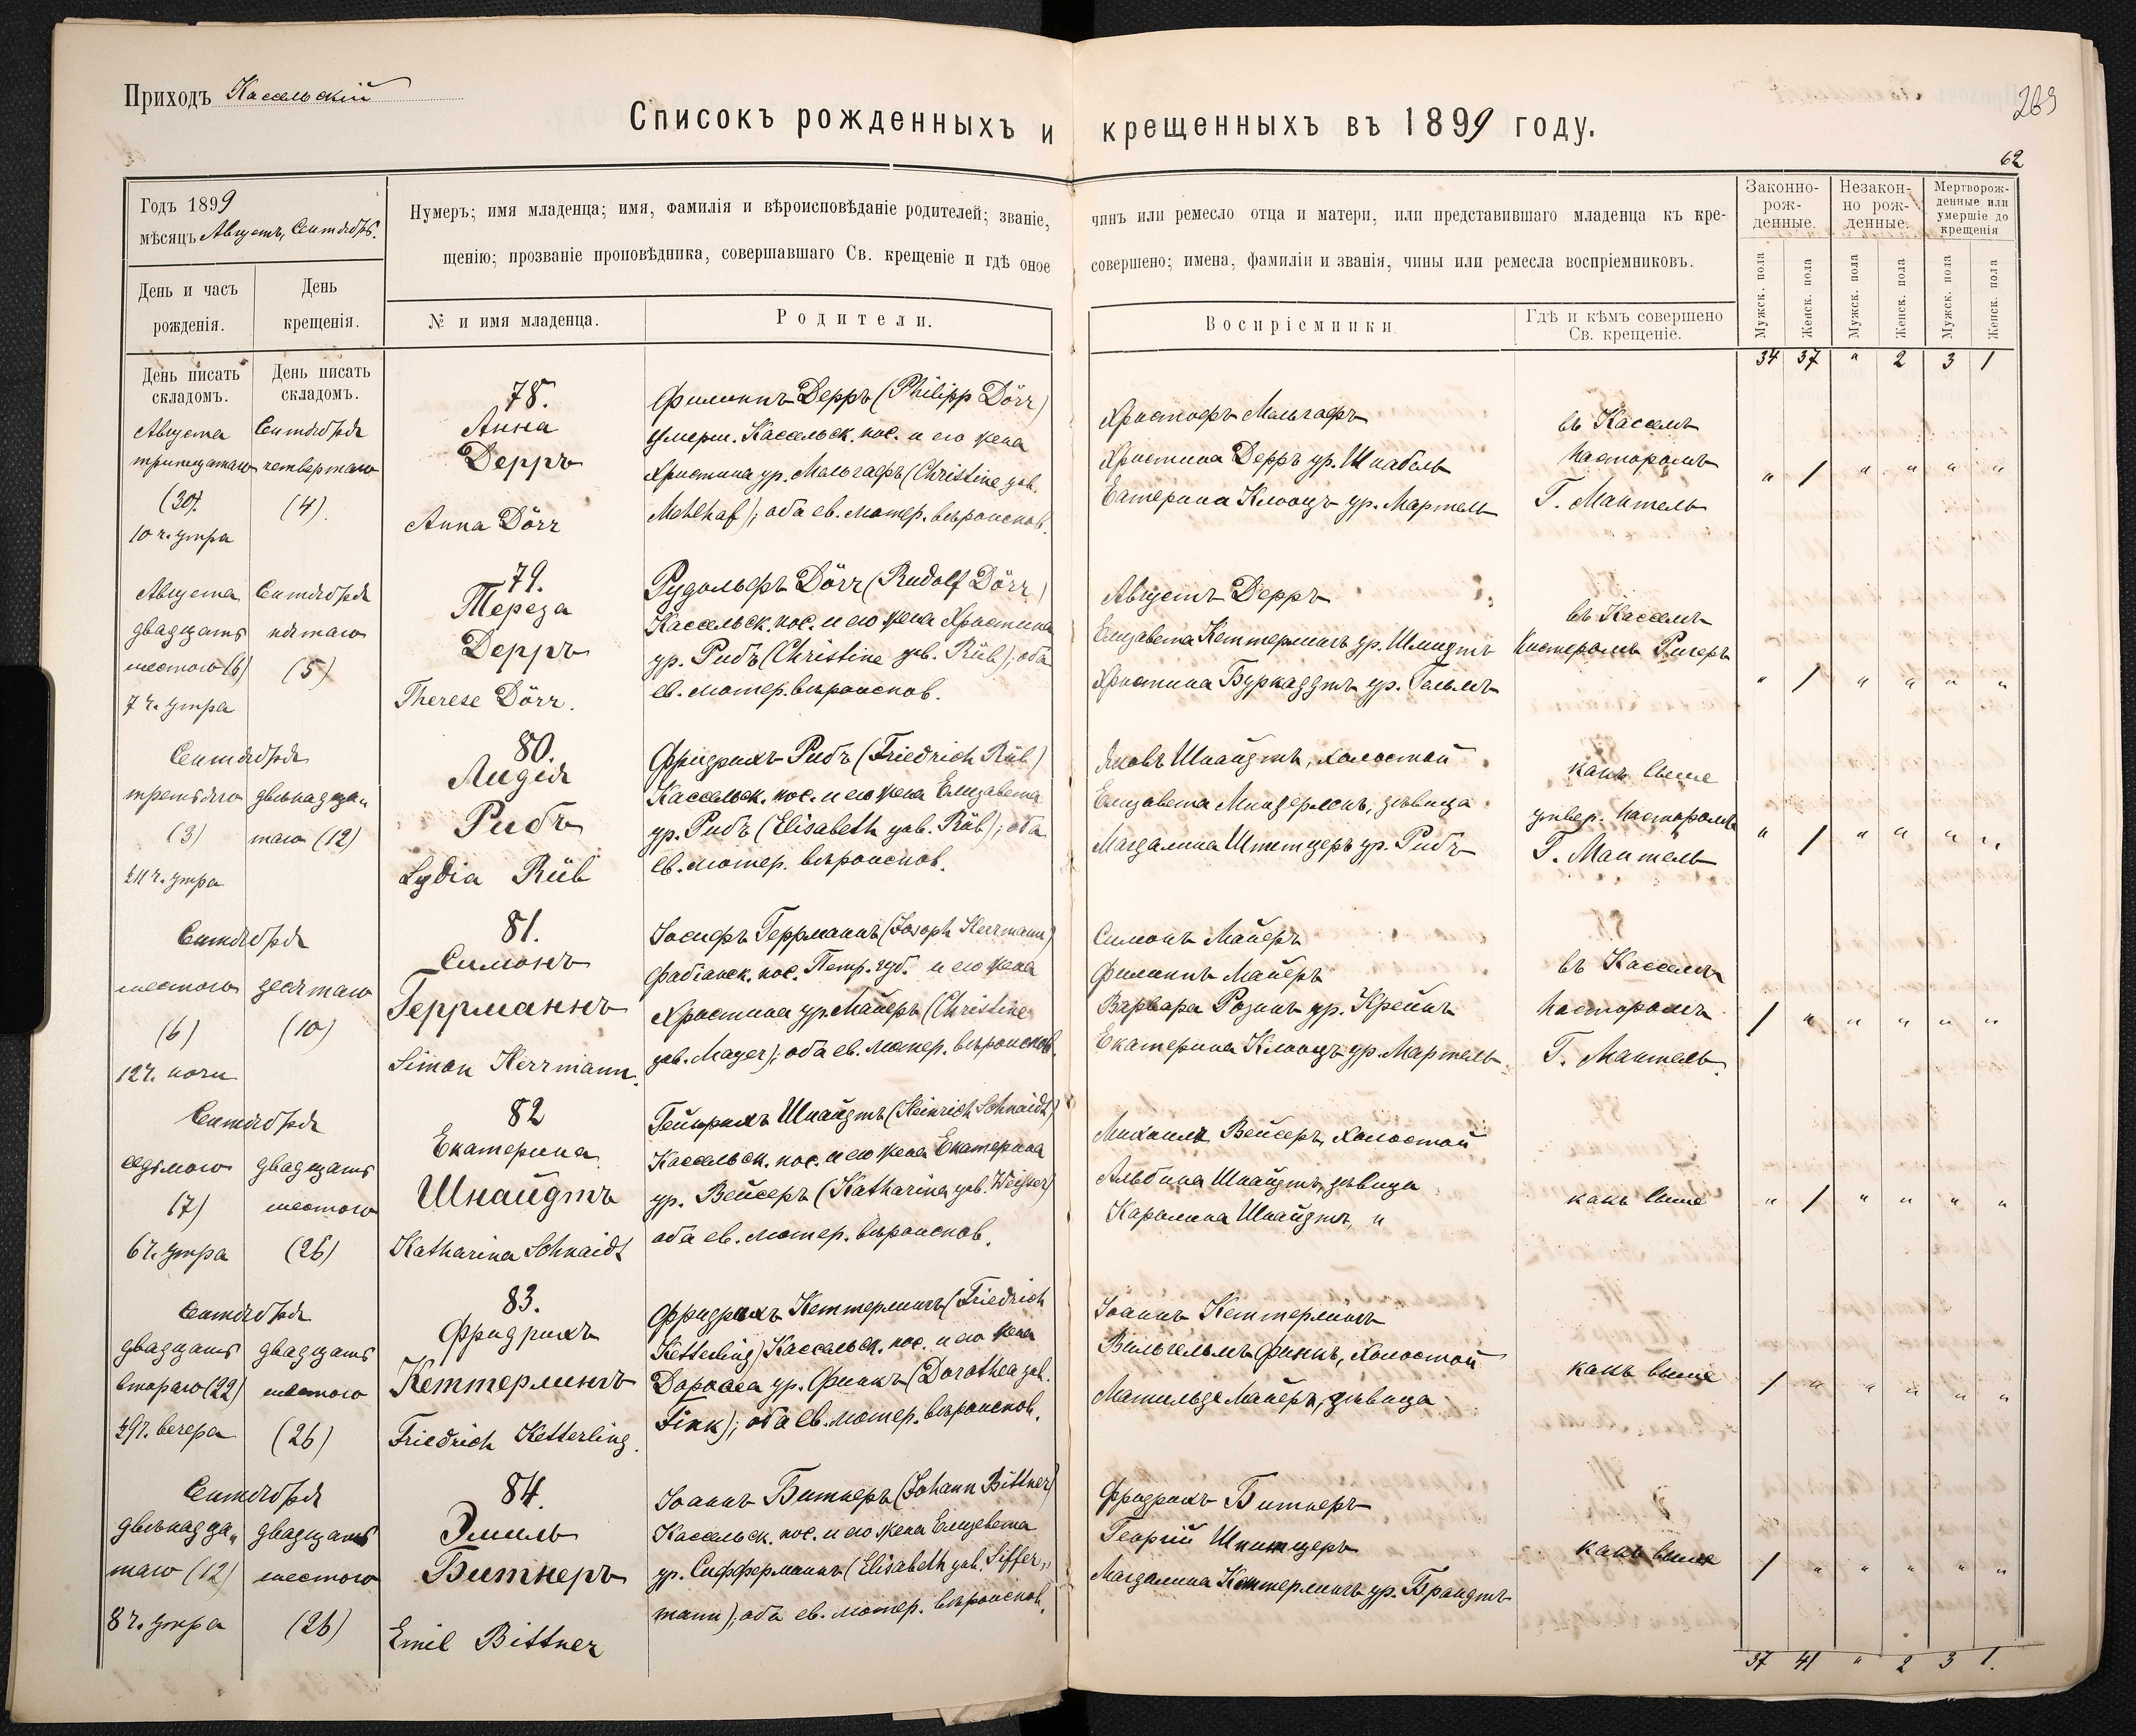 Приходъ Кассельскій
Списокъ рожденныхъ и крещенныхъ въ 1899 году.
269
62
Годъ 1899
мѣсяцъ Августъ, Сентябрь.
День и часъ рожденія.
День крещенія.
Нумеръ; имя младенца; имя, фамилія и вѣроисповѣданіе родителей; званіе, чинъ или ремесло отца и матери, или представившаго младенца къ кре-
щенію; прозваніе проповѣдника, совершавшаго Св. крещеніе и гдѣ оное совершено; имена, фамиліи и званія, чины или ремесла воспріемниковъ.
№ и имя младенца.
Родители.
Воспріемники.
Гдѣ и кѣмъ совершено
Св. крещеніе.
Законно-
рож-
денные.
Незакон-
но рож-
денные.
Мертворож-
денные или
умершіе до
крещенія
Мужск. пола
Женск. пола
Мужск. пола
Женск. пола
Мужск. пола
Женск. пола
34 37 " 2 3 1
День писать
складомъ.
День писать
складомъ.
Августа
тридцатаго
(30).
10 ч. утра
Сентября
четвертаго
(4).
78.
Анна
Дерръ
Anna Dörr
Филиппъ Дерръ (Philipp Dörr)
умерш. Кассельск. пос. и его жена
Христина ур. Мальгафъ (Christine geb.
Mehlhaf); оба ев. лютер. вѣроиспов.
Христофъ Мальгафъ
Христина Дерръ ур. Шнабель
Екатерина Клооцъ ур. Мартель
въ Касселѣ
пасторомъ
Г. Мантель
" / " " " "
Августа
двадцать
шестого (6)
7 ч. утра
Сентября
пятаго
(5)
79.
Тереза
Дерръ
Therese Dörr.
Рудольфъ Dörr (Rudolf Dörr)
Кассельск. пос. и его жена Христина
ур. Рибъ (Christine geb. Rüb); оба
ев. лютер. вѣроиспов.
Августъ Дерръ
Елизавета Кеттерлингъ ур. Шмидтъ
Христина Буркаддтъ ур. Гельмъ
въ Касселѣ
Кистеромъ Ригеръ
" / " " " "
Сентября
третьяго
(3)
½11 ч. утра
двѣнадца„
таго (12)
80.
Лидія
Рибъ
Lydia Rüb
Фридрихъ Рибъ (Friedrich Rüb)
Кассельск. пос. и его жена Елизавета
ур. Рибъ (Elisabeth geb. Rüb); оба
ев. лютер. вѣроиспов.
Яковъ Шнайдтъ, холостой
Елизавета Миндерленъ, дѣвица
Магдалина Штетцеръ ур. Рибъ
какъ выше
утвер. пасторомъ
Г. Мантель
" / " " " "
Сентября
шестого
(6)
12 ч. ночи
десятаго
(10)
81.
Симонъ
Геррманнъ
Simon Herrmann.
Іосифъ Геррманнъ (Joseph Herrmann)
Фабіанск. пос. Петр. губ. и его жена
Христина ур. Майеръ (Christine
geb. Mayer); оба ев. лютер. вѣроиспов.
Симонъ Майеръ
Филиппъ Майеръ
Варвара Розинъ ур. Крейнъ
Екатерина Клооцъ ур. Мартель
въ Касселѣ
пасторомъ
Г. Мантель.
/ " " " " "
Сентября
седьмого
(7)
6 ч. утра
двадцать
шестого
(26)
82
Екатерина
Шнайдтъ
Katharina Schnaidt
Гейнрихъ Шнайдтъ (Heinrich Schnaidt)
Кассельск. пос. и его жена Екатерина
ур. Вейсеръ (Katharina geb. Weisser)
оба ев. лютер. вѣроиспов.
Михаилъ Вейсеръ, холостой
Альбина Шнайдтъ, дѣвица
Каролина Шнайдтъ, "
какъ выше
" / " " " "
Сентября
двадцать
втораго (22)
½9 ч. вечера
двадцать
шестого
(26)
83.
Фридрихъ
Кеттерлингъ
Friedrich Ketterling.
Фридрихъ Кеттерлингъ (Friedrich
Ketterling) Кассельск. пос. и его жена
Доротея ур. Финкъ (Dorothea geb.
Fink); оба ев. лютер. вѣроиспов.
Іоаннъ Кеттерлингъ
Вильгельмъ Финкъ, холостой
Матильде Майеръ, дѣвица
какъ выше
/ " " " " "
Сентября
двѣнадца„
таго (12)
8 ч. утра
двадцать
шестого
(26)
84.
Эмиль
Битнеръ
Emil Bittner
Іоаннъ Битнеръ (Johann Bittner)
Кассельск. пос. и его жена Елизавета
ур. Сифферманнъ (Elisabeth geb. Siffer„
mann); оба ев. лютер. вѣроиспов.
Фридрихъ Битнеръ
Георгій Шпитцеръ
Магдалина Кеттерлингъ ур. Брандтъ
какъ выше
/ " " " " "
37 41 " 2 3 1.